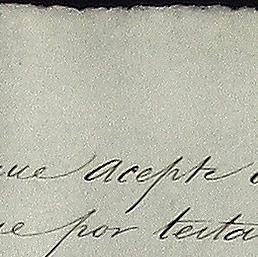 que acepte
ue por testa